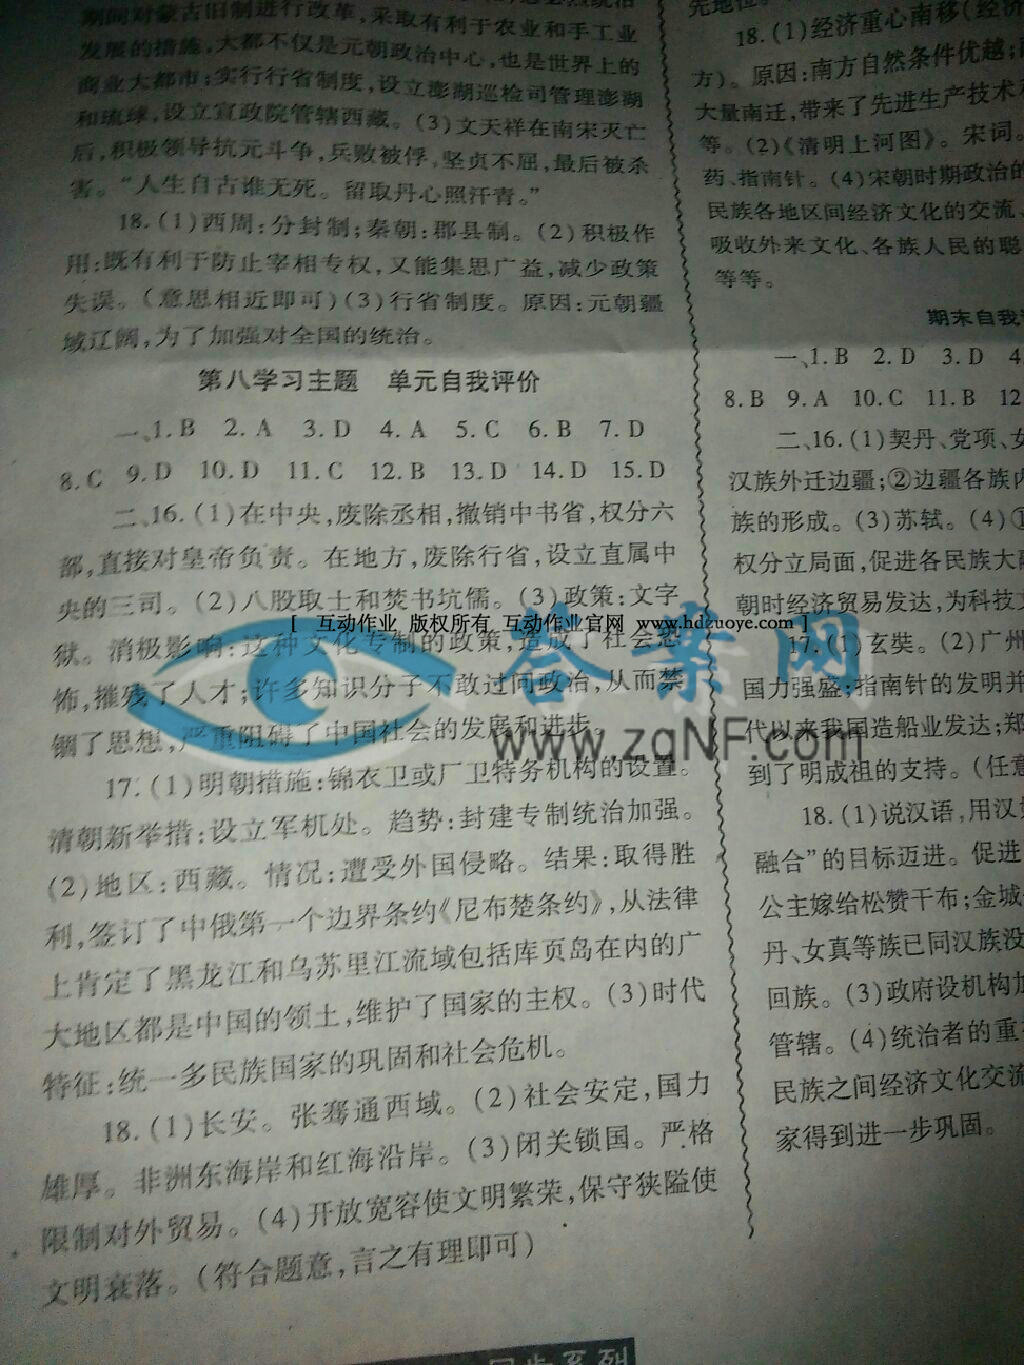 期间对蒙古旧制进行改革,采取有利于农业和手工业
发展的措施,大都不仅是元朝政治中心,也是世界上的
商业大都市;实行行省制度,设立澎湖巡检司管理澎湖
和琉球,设立宣政院管辖西藏。(3)文天祥在南宋灭亡
后,积极领导抗元斗争,兵败被俘,坚贞不屈,最后被杀
害。“人生自古谁无死。留取丹心照汗青。”
18.(1)西周:分封制;秦朝:郡县制。(2)积极作
用:既有利于防止宰相专权,又能集思广益,减少政策
失误。(意思相近即可)(3)行省制度。原因:元朝疆
域辽阔,为了加强对全国的统治。
第八学习主题 单元自我评价
一、1.B 2.A 3.D 4.A 5.C 6.B 7.D
8.C 9.D 10.D 11.C 12.B 13.D 14.D 15.D
二、16.(1)在中央,废除丞相,撤销中书省,权分六
部,直接对皇帝负责。在地方,废除行省,设立直属中
央的三司。(2)八股取士和焚书坑儒。(3)政策:文字
狱。消极影响:这种文化专制的政策,造成了社会恐
怖,摧残了人才;许多知识分子不敢过问政治,从而禁
锢了思想,严重阻碍了中国社会的发展和进步。
17.(1)明朝措施:锦衣卫或厂卫特务机构的设置。
清朝新举措:设立军机处。趋势:封建专制统治加强。
(2)地区:西藏。情况:遭受外国侵略。结果:取得胜
利,签订了中俄第一个边界条约《尼布楚条约》,从法律
上肯定了黑龙江和乌苏里江流域包括库页岛在内的广
大地区都是中国的领土,维护了国家的主权。(3)时代
特征:统一多民族国家的巩固和社会危机。
18.(1)长安。张骞通西域。(2)社会安定,国力
雄厚。非洲东海岸和红海沿岸。(3)闭关锁国。严格
限制对外贸易。(4)开放宽容使文明繁荣,保守狭隘使
文明衰落。(符合题意,言之有理即可)
先地位。
18.(1)经济重心南移(经济
方)。原因:南方自然条件优越;
大量南迁,带来了先进生产技术
等。(2)《清明上河图》。宋词。
药、指南针。(4)宋朝时期政治的
民族各地区间经济文化的交流、
吸收外来文化、各族人民的聪
等等。
期末自我
一、1.B 2.D 3.D 4
8.B 9.A 10.C 11.B 12
二、16.(1)契丹、党项、女
汉族外迁边疆;②边疆各族内
族的形成。(3)苏轼。(4)①
权分立局面,促进各民族大融
朝时经济贸易发达,为科技
17.(1)玄奘。(2)广州
国力强盛;指南针的发明并
代以来我国造船业发达;郑
到了明成祖的支持。(任意
18.(1)说汉语,用汉
融合”的目标迈进。促进
公主嫁给松赞干布;金城
丹、女真等族已同汉族没
回族。(3)政府设机构加
管辖。(4)统治者的重
民族之间经济文化交流
家得到进一步巩固。
[ 互动作业 版权所有 互动作业官网 www.hdzuoye.com ]
答案网
www.zqNF.com
同步系列